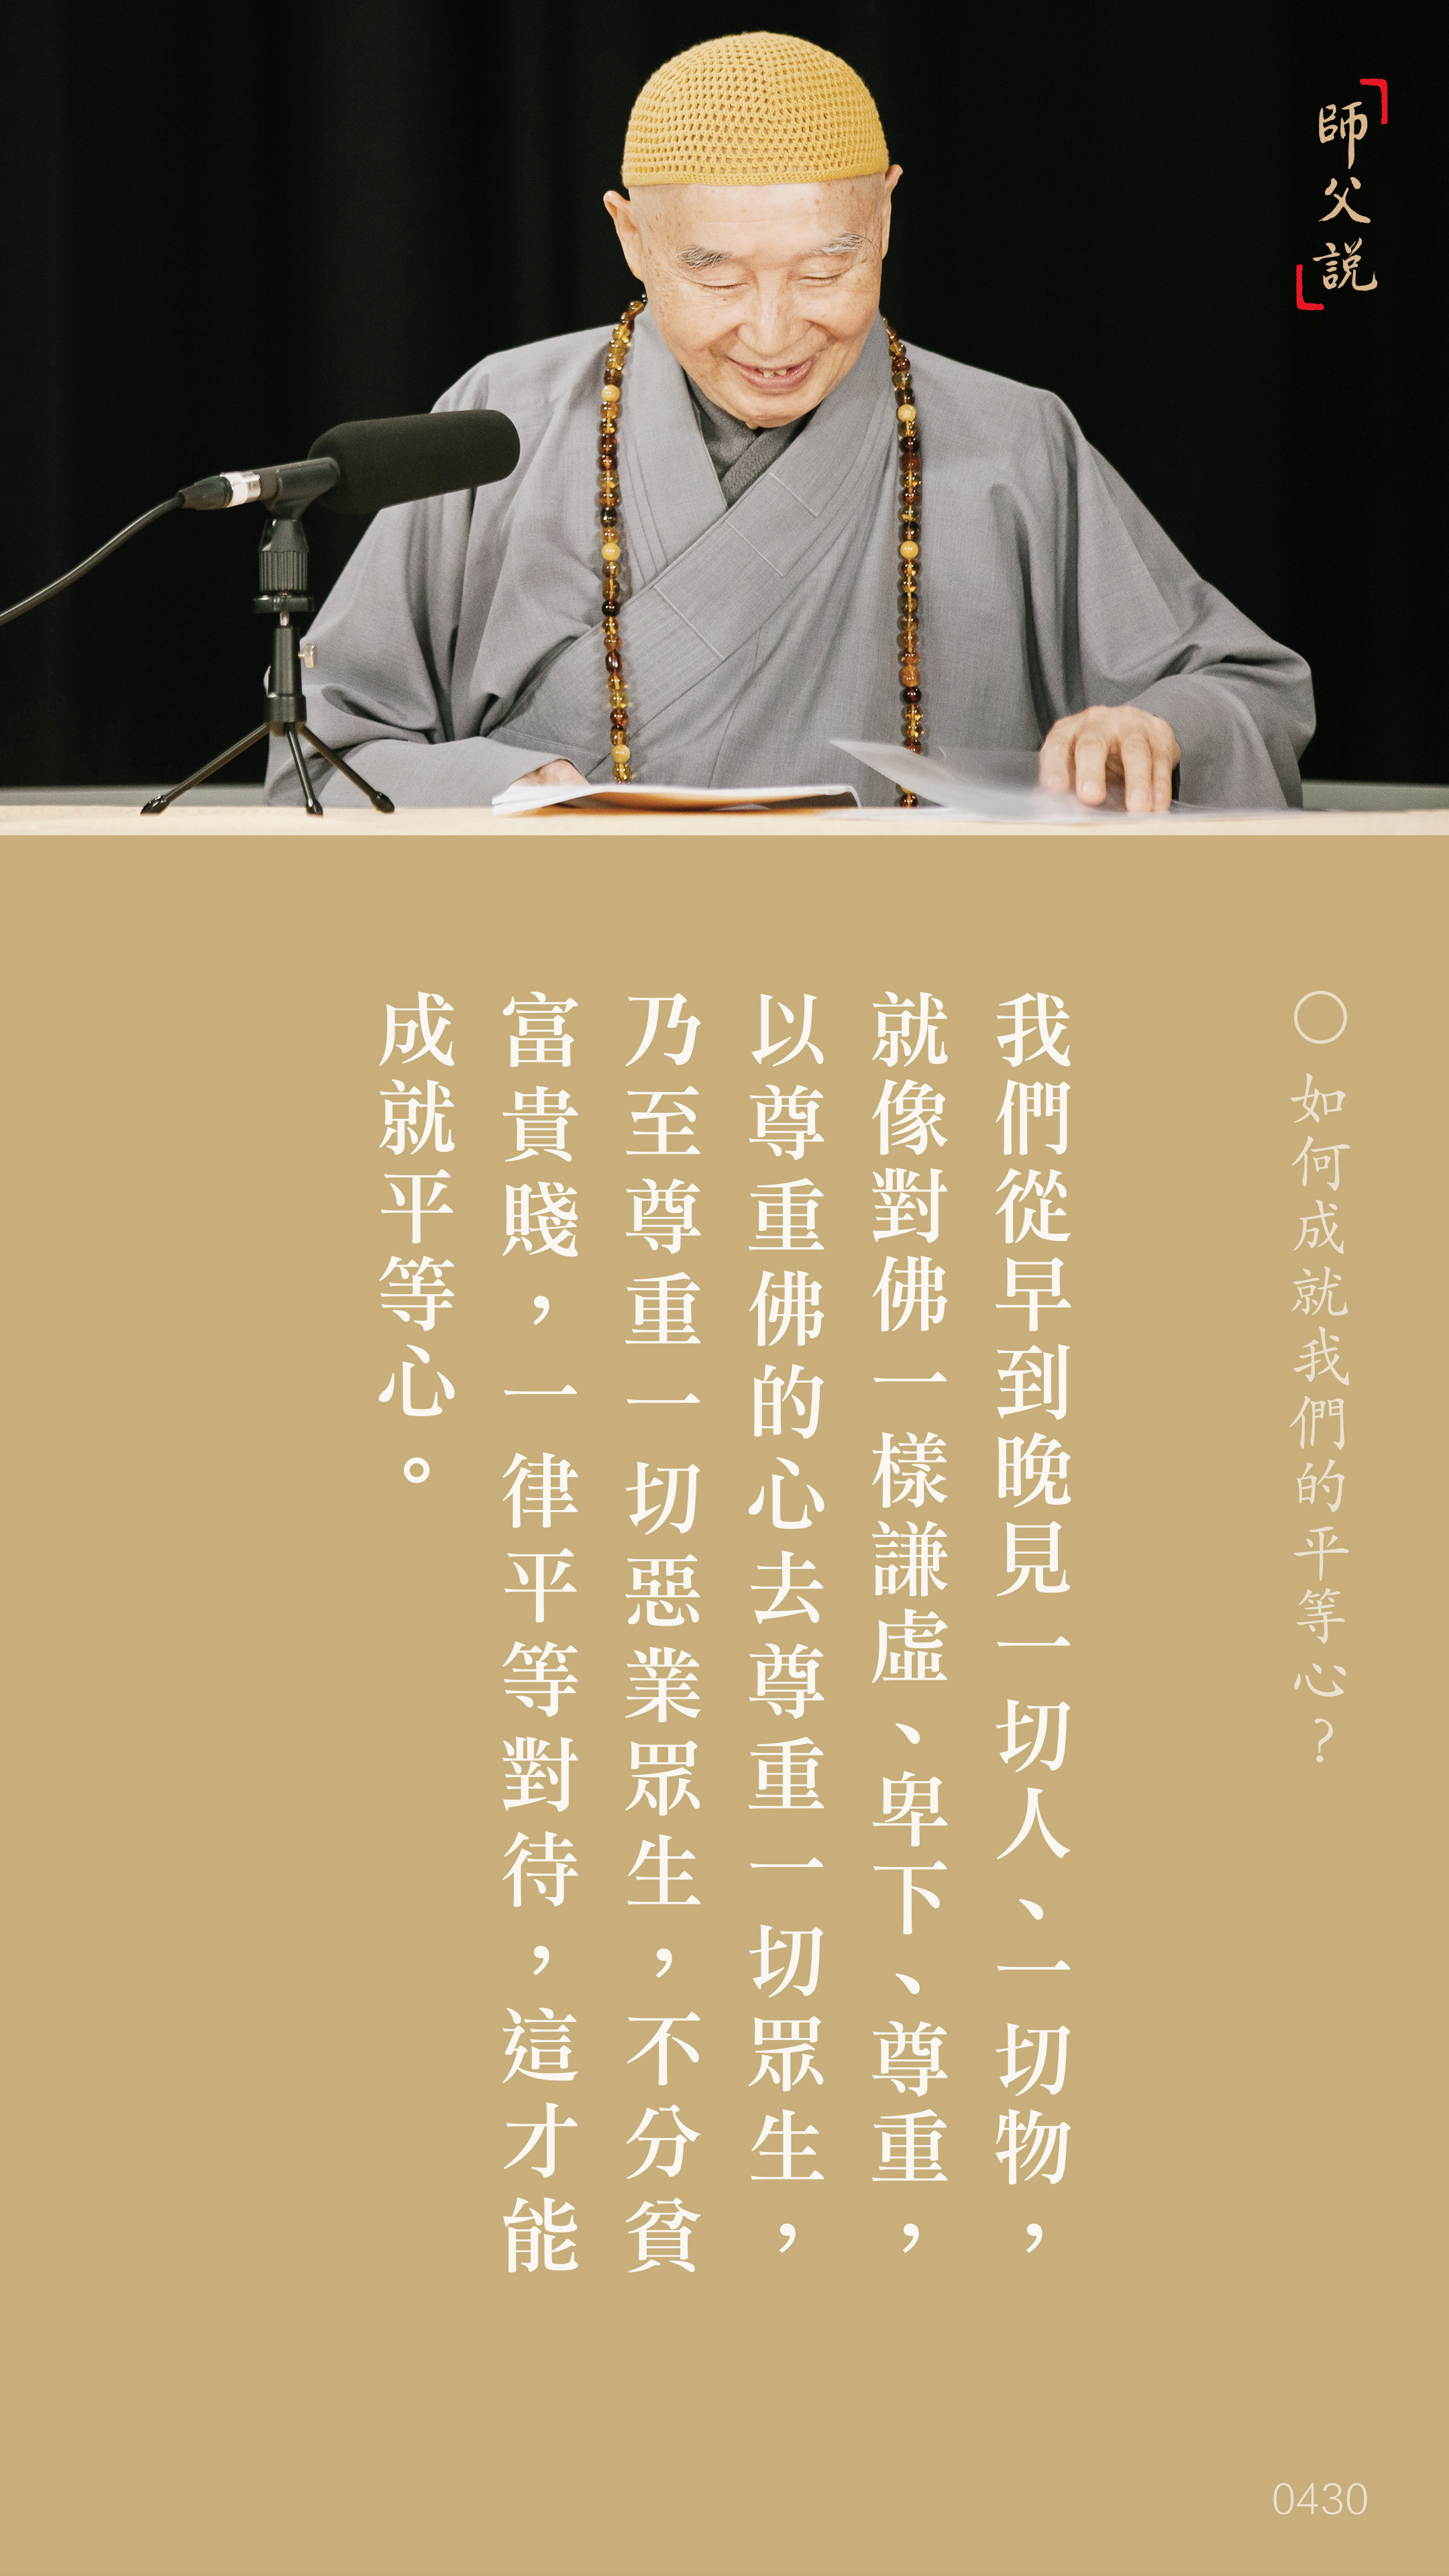 師父説
○如何成就我們的平等心？
我們從早到晚見一切人、一切物，
就像對佛一樣謙虛、卑下、尊重，
以尊重佛的心去尊重一切眾生，
乃至尊重一切惡業眾生，不分貧
富貴賤，一律平等對待，這才能
成就平等心。
0430